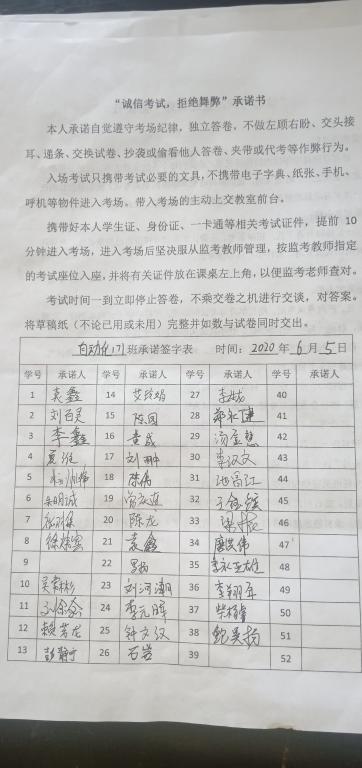 “诚信考试，拒绝舞弊”承诺书
本人承诺自觉遵守考场纪律，独立答卷，不做左顾右盼、交头接
耳、递条、交换试卷、抄袭或偷看他人答卷、夹带或代考等作弊行为。
入场考试只携带考试必要的文具，不携带电子字典、纸张、手机、
呼机等物件进入考场。带入考场的主动上交教室前台。
携带好本人学生证、身份证、一卡通等相关考试证件，提前 10
分钟进入考场，进入考场后坚决服从监考教师管理，按监考教师指定
的考试座位入座，并将有关证件放在课桌左上角，以便监考老师查对。
考试时间一到立即停止答卷，不乘交卷之机进行交谈，对答案。
将草稿纸（不论已用或未用）完整并如数与试卷同时交出。
自动化171班承诺签字表 时间：2020 年 6 月 5 日
学号 承诺人 学号 承诺人 学号 承诺人 学号 承诺人
1 袁鑫 14 27 40
2 刘百灵 15 陈园 28 郑永健 41
3 李鑫 16 黄威 29 汤金慧 42
4 夏维 17 刘翀 30 李汉文 43
5 18 陈伟 31 池昌江 44
6 朱明诚 19 32 45
7 20 陈龙 33 46
8 21 袁鑫 34 唐洪伟 47
9 22 罗扬 35 48
10 吴森彬 23 刘河潮 36 李翔宇 49
11 24 李元晖 37 50
12 赖芳龙 25 钟文汉 38 鲍昊扬 51
13 彭静 26 石岩 39 52